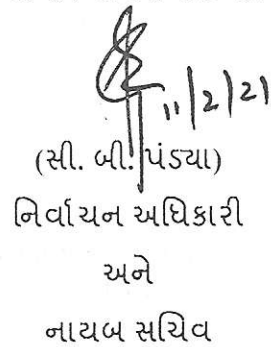 11/2/21
(સી. બી. પંડ્યા)
નિર્વાચન અધિકારી
અને
નાયબ સચિવ